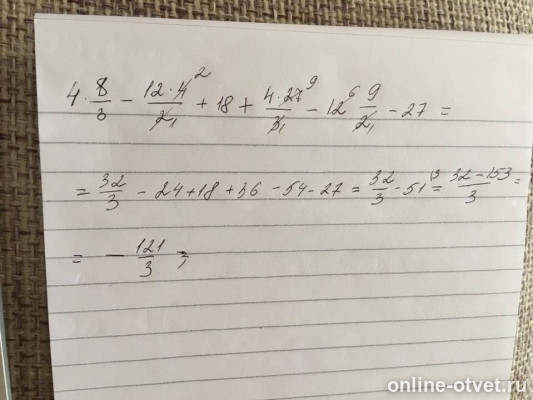 4 · 8/3 − 12·4²/2₁ + 18 + 4·27⁹/3₁ − 12⁶ 9/2₁ − 27 =
= 32/3 − 24+18+36 −54−27 = 32/3 − 51⁽³ = 32−153/3 =
= − 121/3 ;
online-otvet.ru